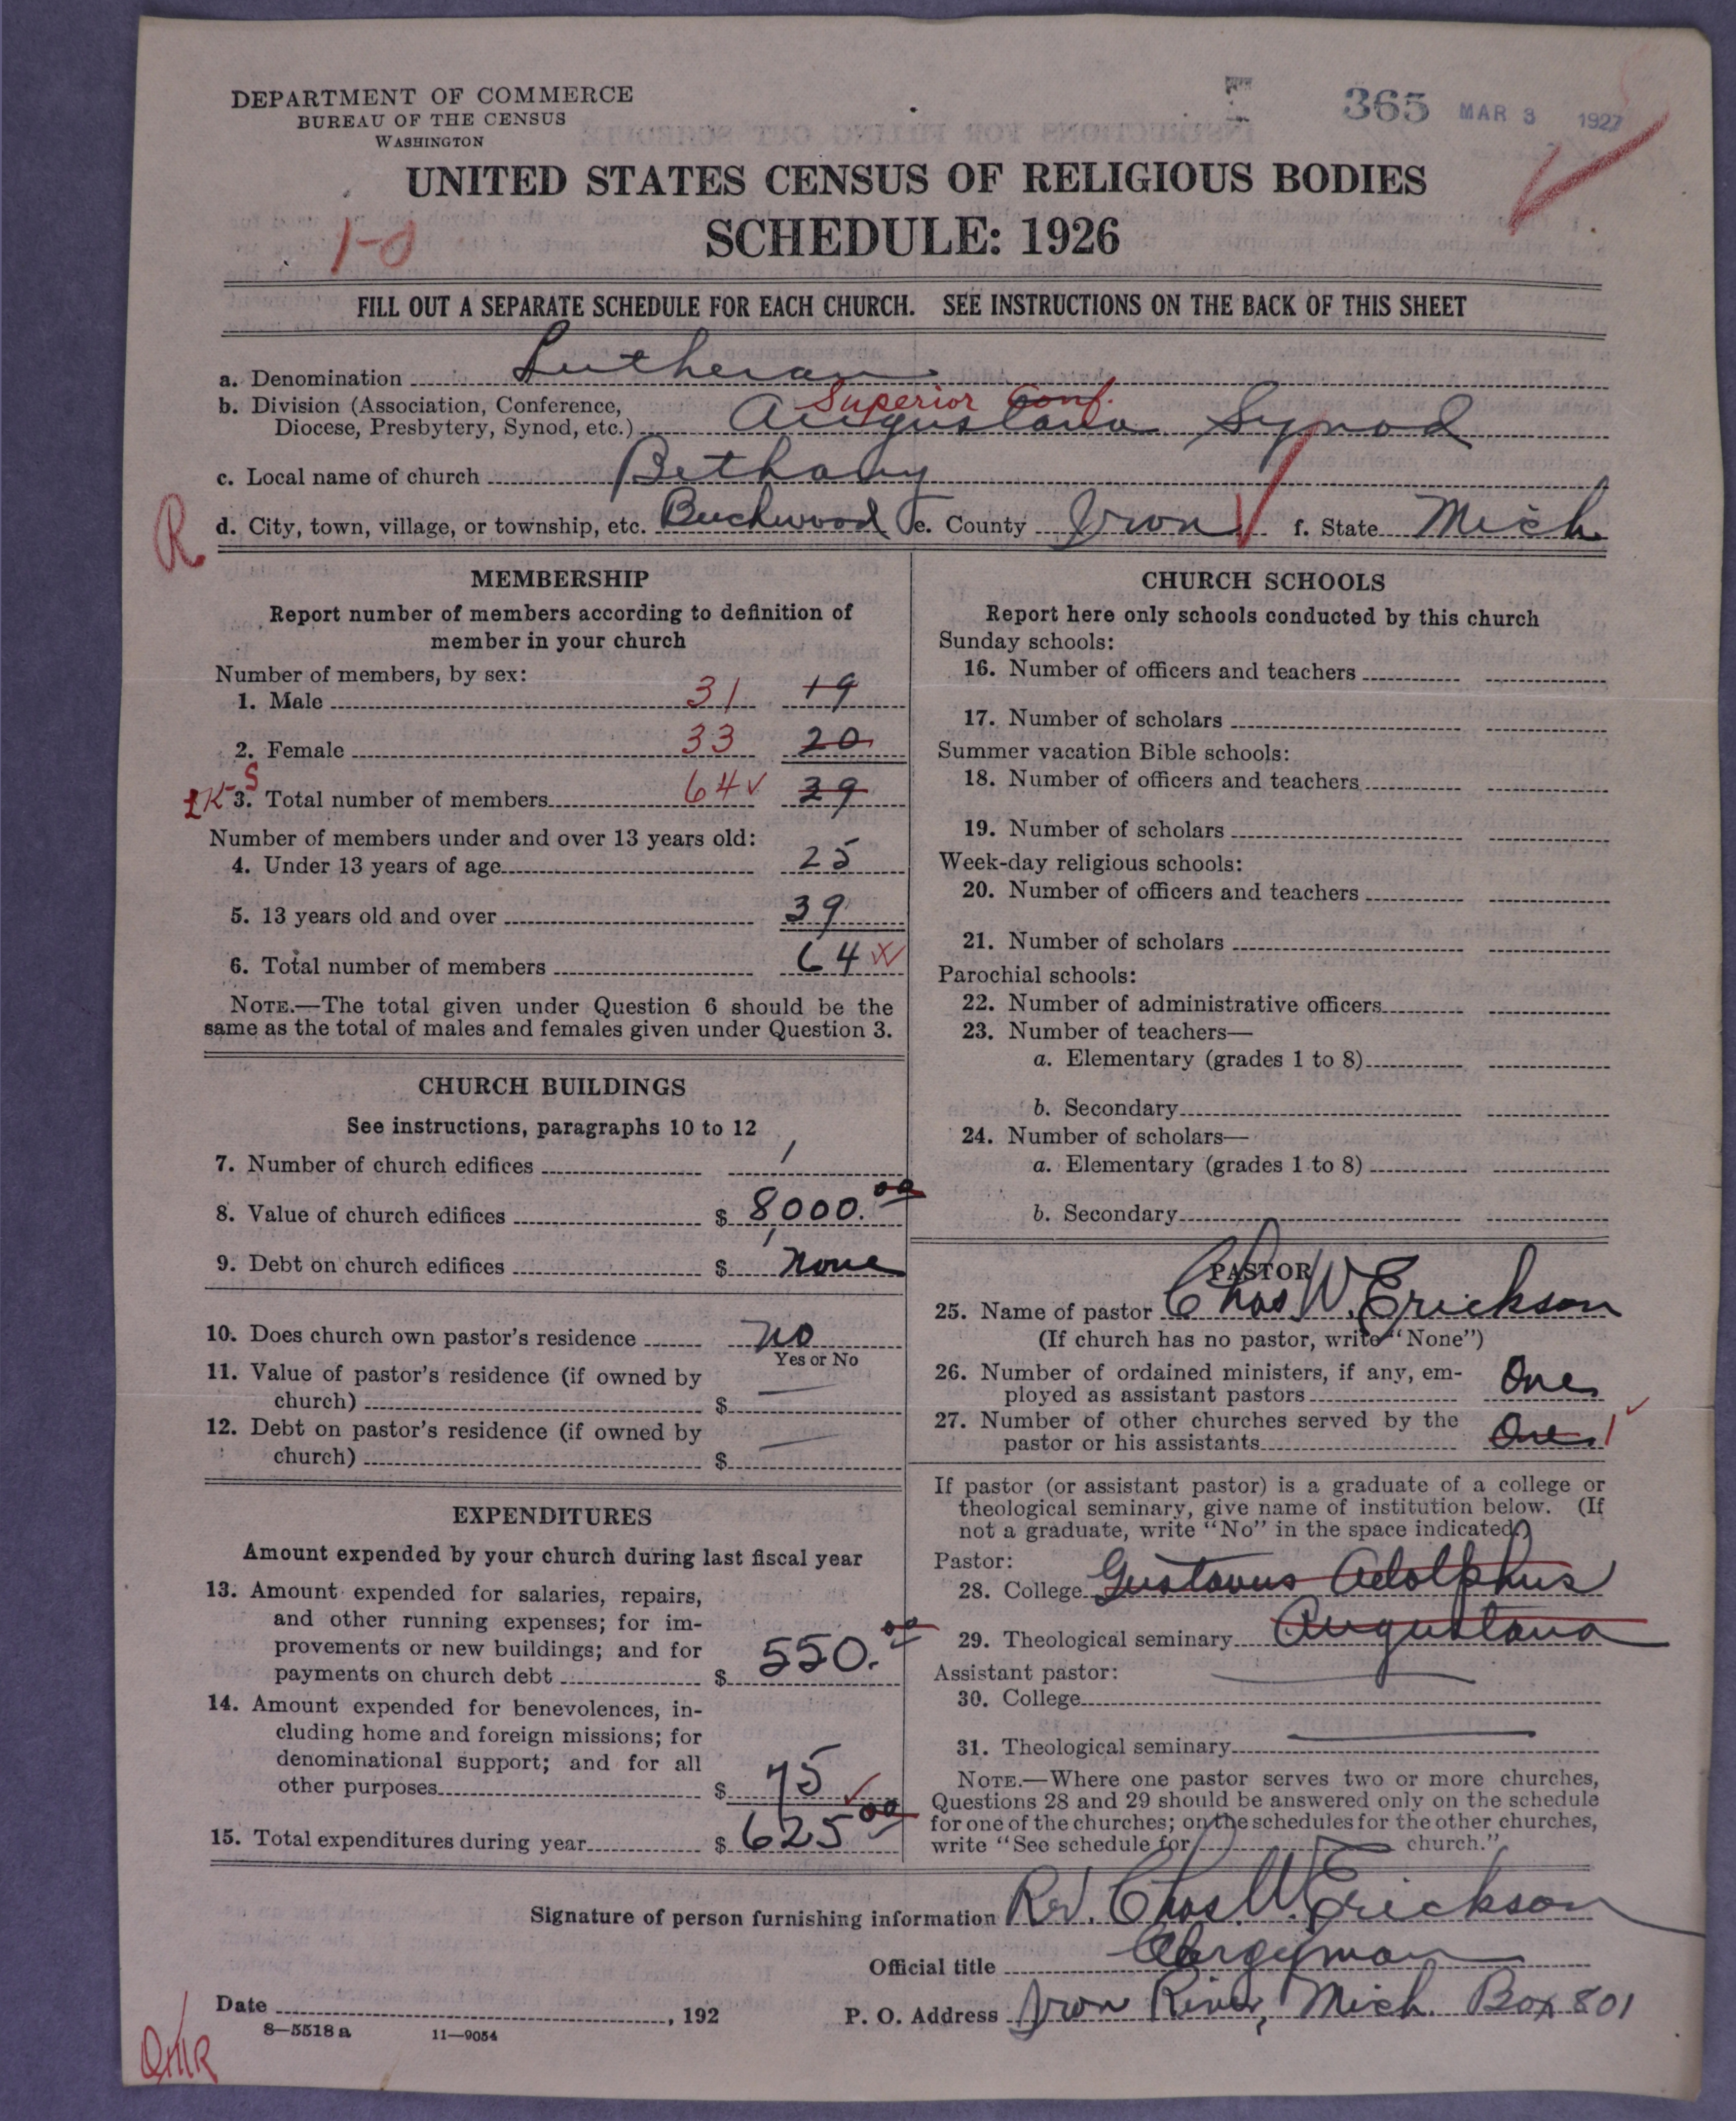 DEPARTMENT OF COMMERCE
BUREAU OF THE CENSUS
WASHINGTON
365 MAR 3 1927
UNITED STATES CENSUS OF RELIGIOUS BODIES
SCHEDULE: 1926
FILL OUT A SEPARATE SCHEDULE FOR EACH CHURCH. SEE INSTRUCTIONS ON THE BACK OF THIS SHEET
a. Denomination Lutheran
Superior Conf.
b. Division (Association, Conference,
Diocese, Presbytery, Synod, etc.) Augustana Synod
c. Local name of church Bethany
R
d. City, town, village, or township, etc. Beechwood e. County Iron f. State Mich.
MEMBERSHIP
Report number of members according to definition of
member in your church
Number of members, by sex:
1. Male 31 19
2. Female 33 20
3. Total number of members 64 39
Number of members under and over 13 years old:
4. Under 13 years of age 25
5. 13 years old and over 39
6. Total number of members 64
NOTE.—The total given under Question 6 should be the
same as the total of males and females given under Question 3.
CHURCH BUILDINGS
See instructions, paragraphs 10 to 12
7. Number of church edifices 1
8. Value of church edifices $ 8,000.00
9. Debt on church edifices $ none
10. Does church own pastor's residence no
Yes or No
11. Value of pastor's residence (if owned by
church) $ —
12. Debt on pastor's residence (if owned by
church) $ —
EXPENDITURES
Amount expended by your church during last fiscal year
13. Amount expended for salaries, repairs,
and other running expenses; for im-
provements or new buildings; and for
payments on church debt $ 550.00
14. Amount expended for benevolences, in-
cluding home and foreign missions; for
denominational support; and for all
other purposes $ 75
15. Total expenditures during year $ 625 00
CHURCH SCHOOLS
Report here only schools conducted by this church
Sunday schools:
16. Number of officers and teachers
17. Number of scholars
Summer vacation Bible schools:
18. Number of officers and teachers
19. Number of scholars
Week-day religious schools:
20. Number of officers and teachers
21. Number of scholars
Parochial schools:
22. Number of administrative officers
23. Number of teachers—
a. Elementary (grades 1 to 8)
b. Secondary
24. Number of scholars—
a. Elementary (grades 1 to 8)
b. Secondary
PASTOR
25. Name of pastor Chas W. Erickson
(If church has no pastor, write "None")
26. Number of ordained ministers, if any, em-
ployed as assistant pastors One
27. Number of other churches served by the
pastor or his assistants One 1
If pastor (or assistant pastor) is a graduate of a college or
theological seminary, give name of institution below. (If
not a graduate, write "No" in the space indicated.)
Pastor:
28. College Gustavus Adolphus
29. Theological seminary Augustana
Assistant pastor:
30. College
31. Theological seminary
NOTE.—Where one pastor serves two or more churches,
Questions 28 and 29 should be answered only on the schedule
for one of the churches; on the schedules for the other churches,
write "See schedule for church."
Signature of person furnishing information Rev. Chas. W. Erickson
Official title Clergyman
Date , 192 P. O. Address Iron River, Mich. Box 801
8—5518 a 11—9054